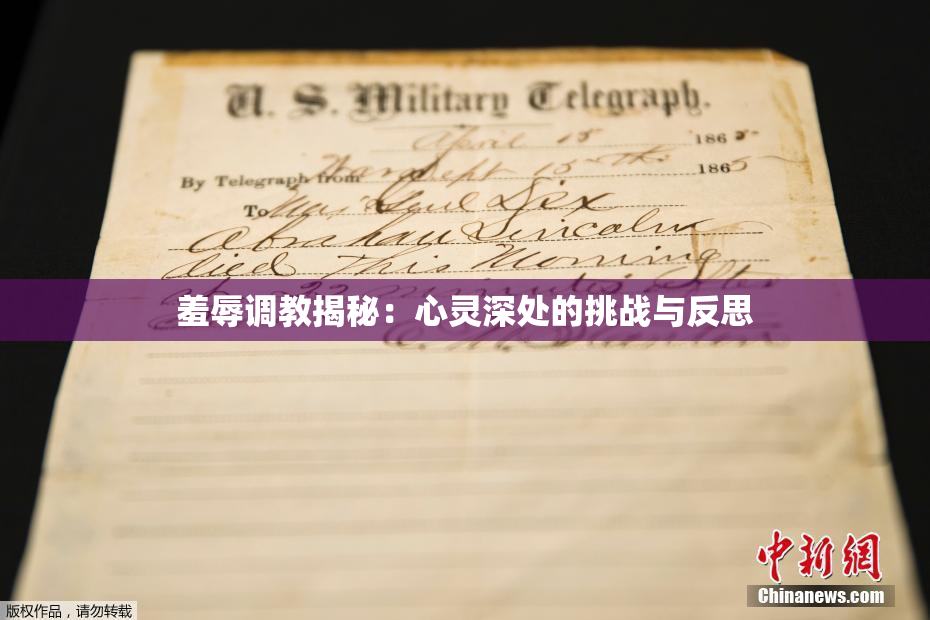 U. S. Military Telegraph.
April 15 1865
By Telegraph from War Dept 15th 1865
To Maj Genl Dix
Abraham Lincoln
died This Morning
at 22 minutes after
羞辱调教揭秘：心灵深处的挑战与反思
中新網
Chinanews.com
版权作品，请勿转载